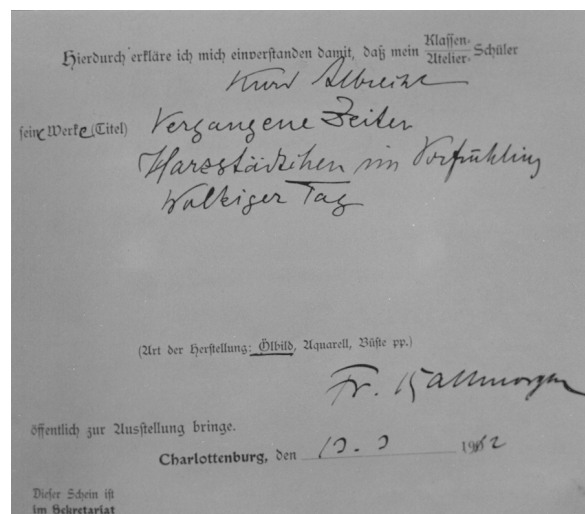 Hierdurch erkläre ich mich einverstanden damit, daß mein Klassen-
Atelier- Schüler
Kurd Albrecht
seine Werke (Titel) Vergangene Zeiten
Harzstädtchen im Vorfrühling
Wolkiger Tag
(Art der Herstellung: Ölbild, Aquarell, Büste pp.)
Fr. Kallmorgen
öffentlich zur Ausstellung bringe.
Charlottenburg, den 1912
Dieser Schein ist
im Sekretariat